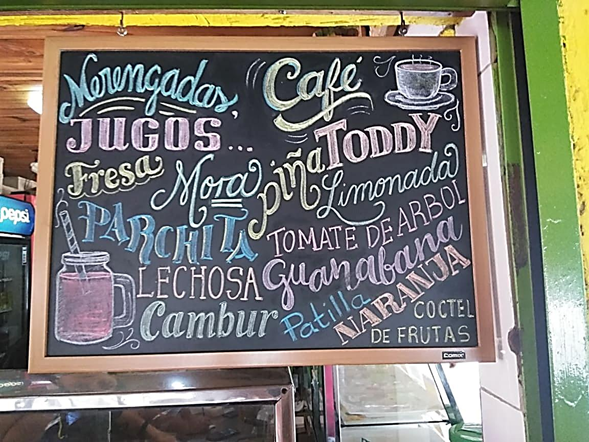 Merengadas,
JUGOS...
Fresa
Mora
PARCHITA
LECHOSA
Cambur
Café
TODDY
piña
Limonada
TOMATE DE ARBOL
Guanabana
Patilla
NARANJA
COCTEL
DE FRUTAS
pepsi